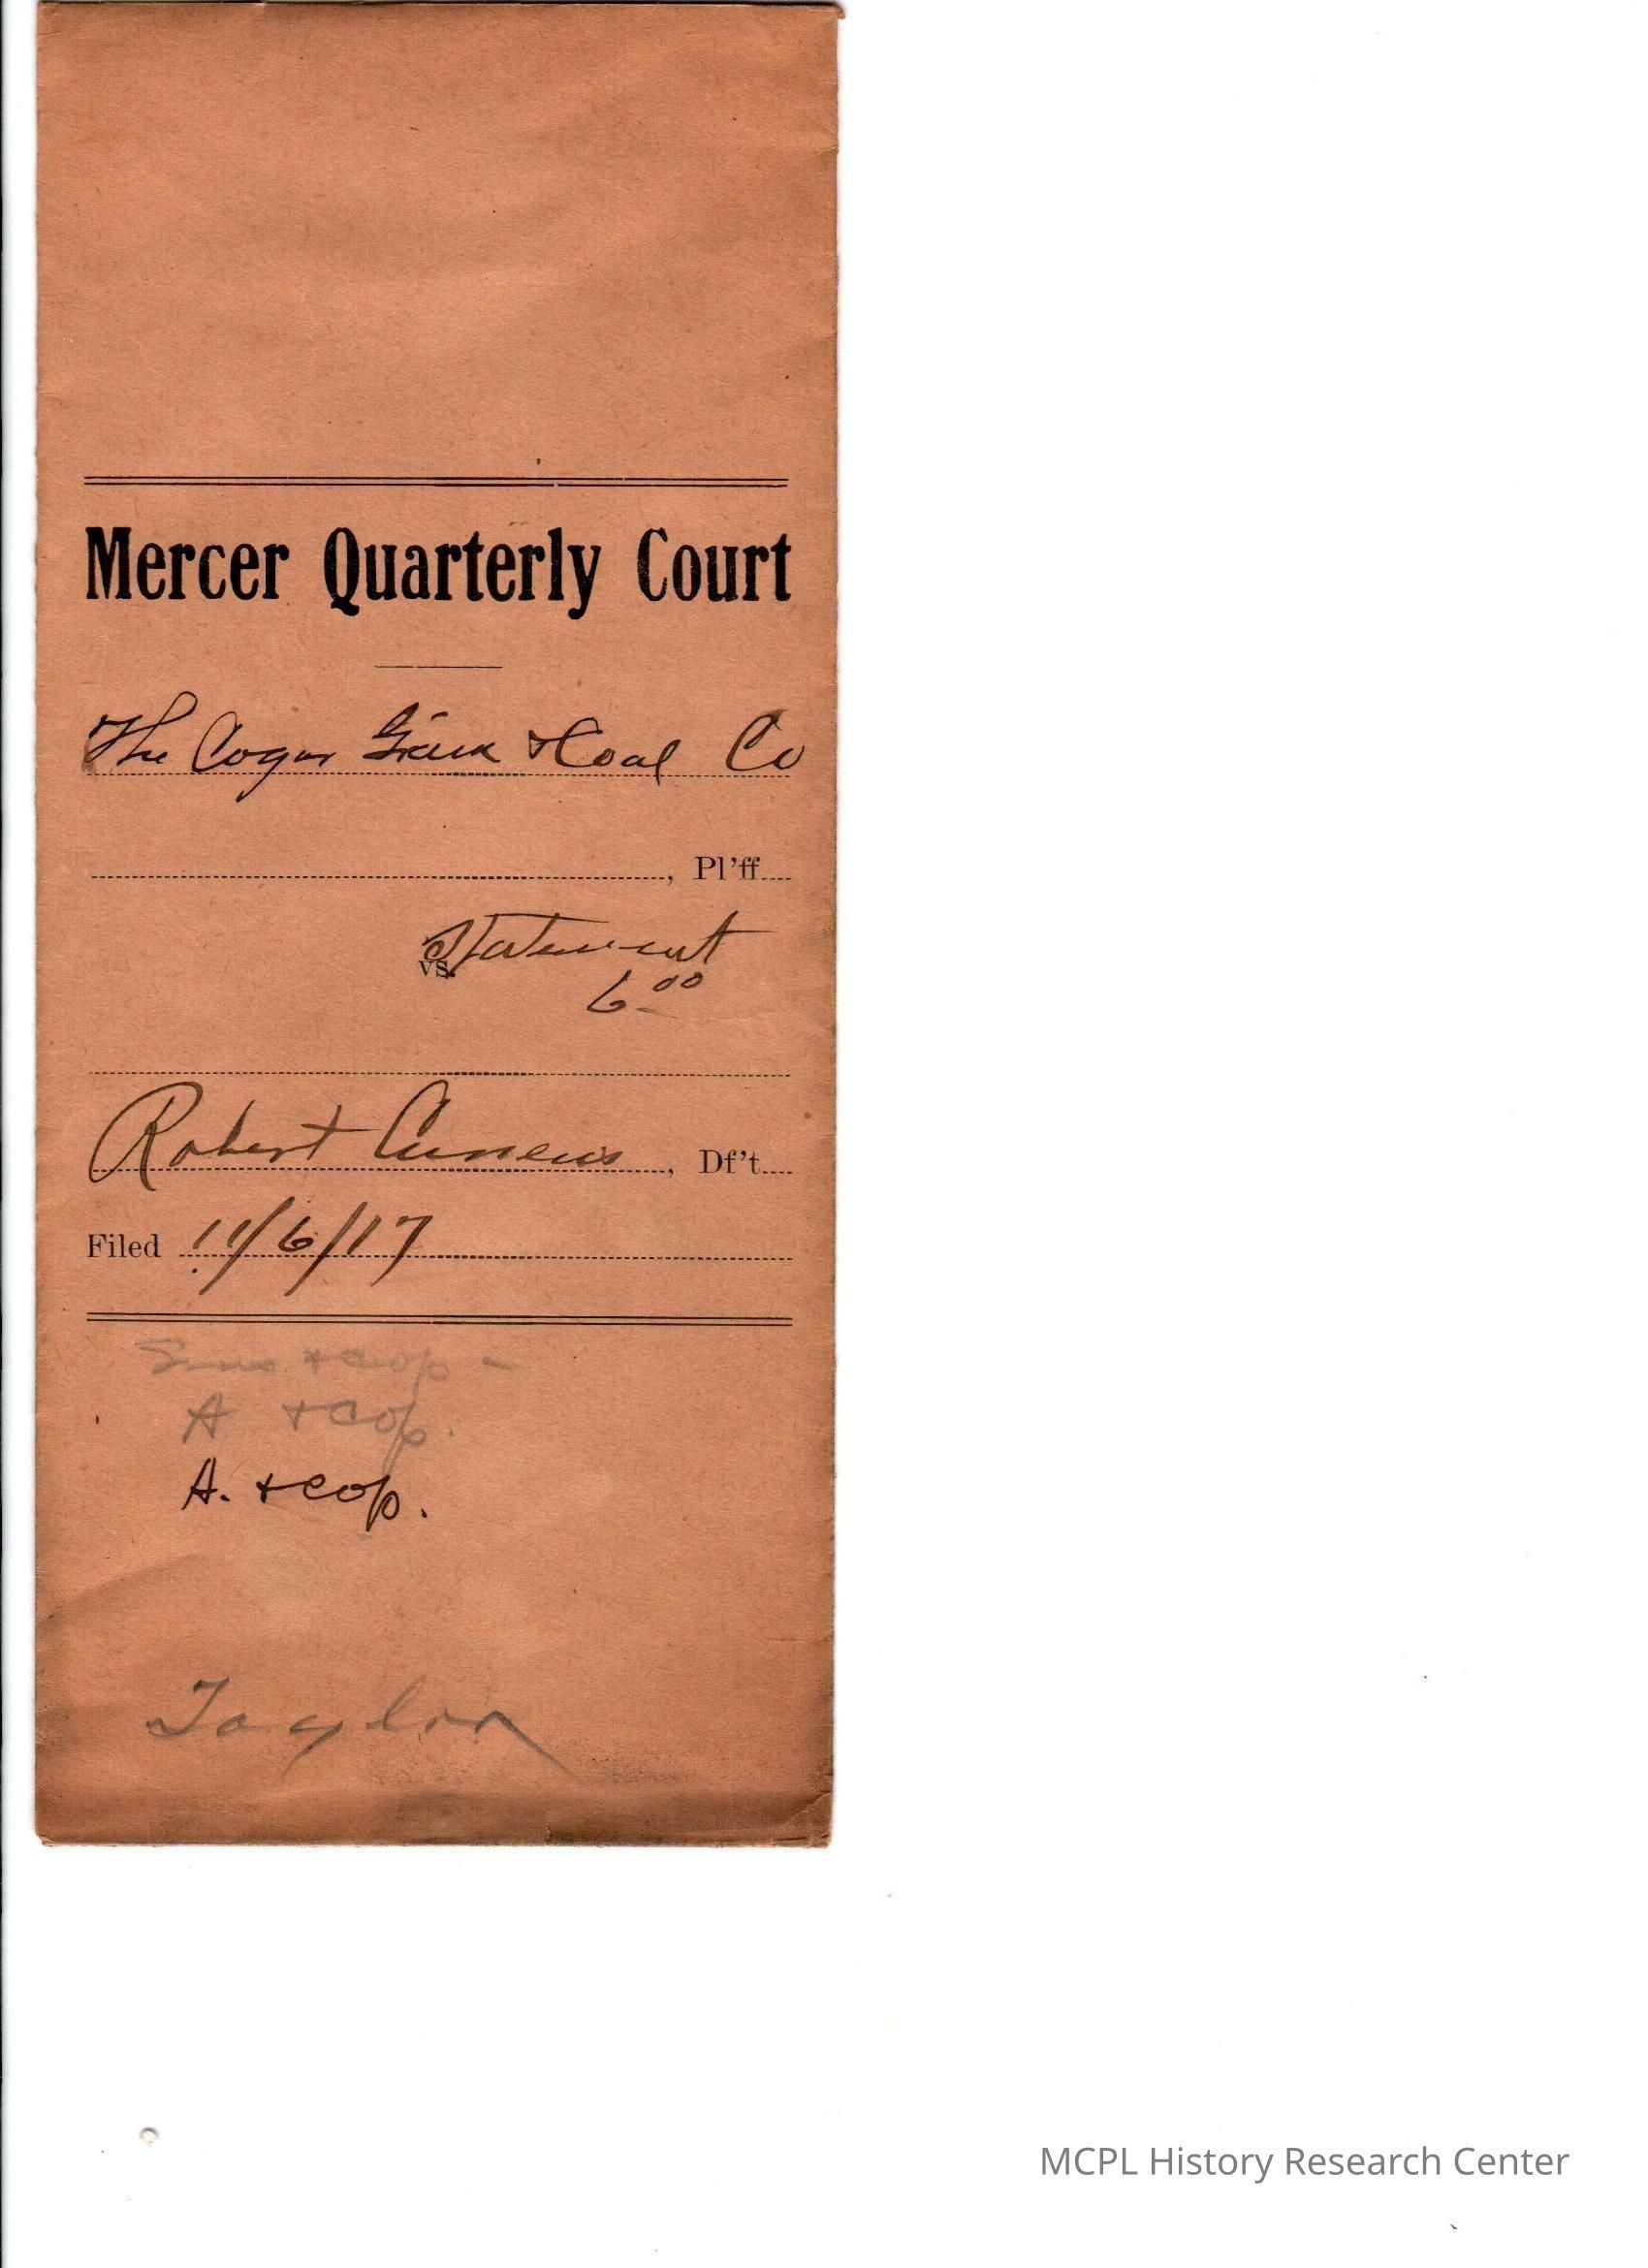 Mercer Quarterly Court
The Cogar Grain & Coal Co
, Pl'ff
Statement
vs.
6 00
Robert
, Df't
Filed 11/6/17
& cop -
A & cop.
A. & cop.
Taylor
MCPL History Research Center